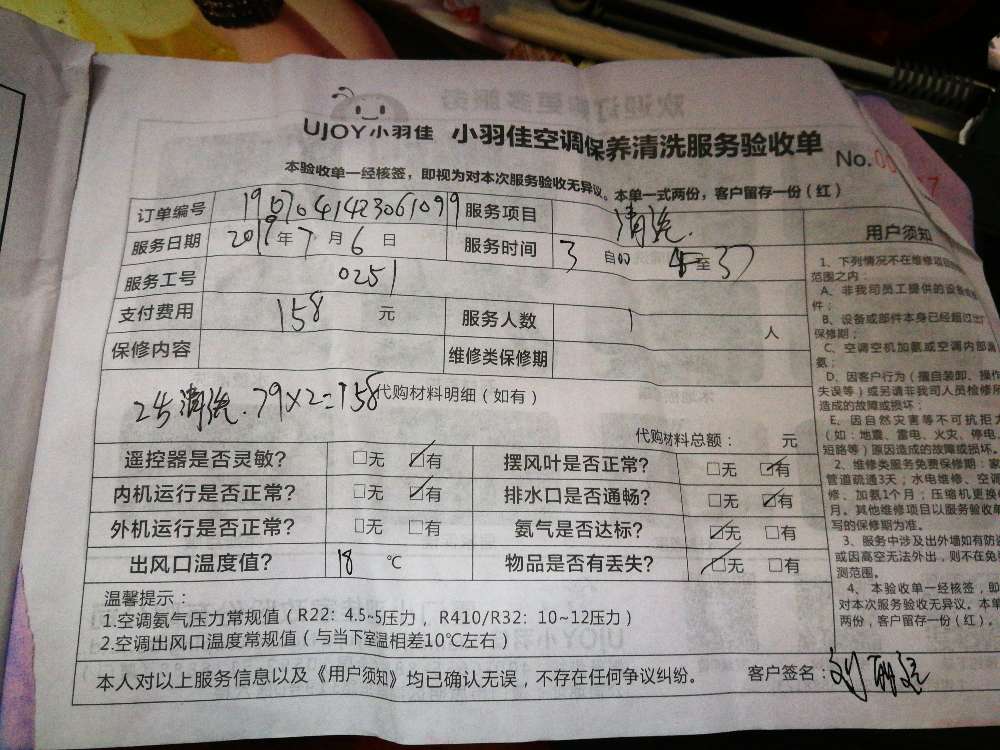 UJOY小羽佳 小羽佳空调保养清洗服务验收单
No.00
本验收单一经核签，即视为对本次服务验收无异议。本单一式两份，客户留存一份（红）
订单编号 190704142306109 9 服务项目 清洗
服务日期 2019年7月6日 服务时间 3 至 37
服务工号 0251
支付费用 158 元 服务人数 1 人
保修内容 维修类保修期
2台清洗.79×2=158 代购材料明细（如有）
代购材料总额： 元
遥控器是否灵敏？ □无 ☑有 摆风叶是否正常？ □无 ☑有
内机运行是否正常？ □无 ☑有 排水口是否通畅？ □无 ☑有
外机运行是否正常？ □无 □有 氨气是否达标？ ☑无 □有
出风口温度值？ 18 ℃ 物品是否有丢失？ ☑无 □有
温馨提示：
1.空调氨气压力常规值（R22：4.5~5压力，R410/R32：10~12压力）
2.空调出风口温度常规值（与当下室温相差10℃左右）
本人对以上服务信息以及《用户须知》均已确认无误，不存在任何争议纠纷。 客户签名：刘
用户须知
1、下列情况不在维修项目
范围之内：
A、非我司员工提供的设备
件；
B、设备或部件本身已经超过
保修期；
C、空调空机加氨或空调内部
氨；
D、因客户行为（擅自装卸、操作
失误等）或另请非我司人员检修
造成的故障或损坏；
E、因自然灾害等不可抗拒
（如：地震、雷电、火灾、停电、
短路等）原因造成的故障或损坏。
2、维修类服务免费保修期：
管道疏通3天；水电维修、空调
修、加氨1个月；压缩机更换
月。其他维修项目以服务验收单
写的保修期为准。
3、服务中涉及出外墙如有防
或因高空无法外出，则不在免
测范围。
4、本验收单一经核签，即
对本次服务验收无异议。本单
两份，客户留存一份（红）。